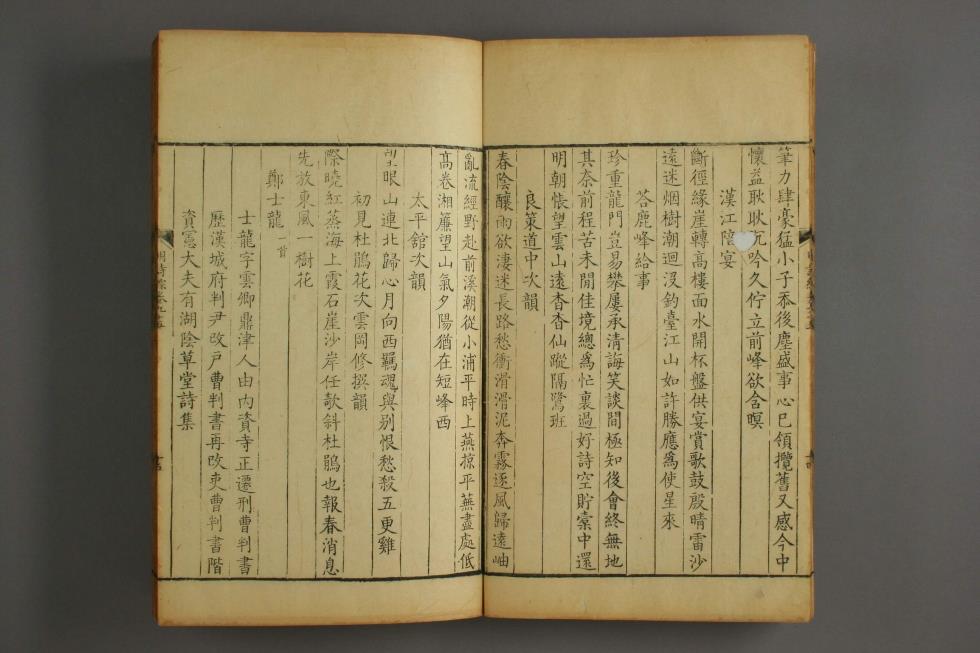 筆力肆豪猛小子忝後塵盛事心已領攬舊又感今中
懷益耿耿沉吟久佇立前峰欲含暝
漢江陪宴
斷徑緣崖轉高樓面水開杯盤供宴賞歌鼓殷晴雷沙
遠迷烟樹潮迴沒釣臺江山如許勝應爲使星來
荅鹿峰給事
珍重龍門豈易攀屢承清誨笑談間極知後會終無地
其奈前程苦未閒佳境總爲忙裏過好詩空貯槖中還
明朝悵望雲山遠杳杳仙蹤隔鷺班
良策道中次韻
春陰釀雨欲淒迷長路愁衝滑滑泥奔霧逐風歸遠岫
亂流經野赴前溪潮從小浦平時上燕掠平蕪盡處低
高卷湘簾望山氣夕陽猶在短峰西
太平舘次韻
望眼山連北歸心月向西羈魂與别恨愁殺五更雞
初見杜鵑花次雲岡修撰韻
際曉紅蒸海上霞石崖沙岸任欹斜杜鵑也報春消息
先放東風一樹花
鄭士龍 一首
士龍字雲卿鼎津人由内資寺正遷刑曹判書
歷漢城府判尹改戸曹判書再改吏曹判書階
資憲大夫有湖陰草堂詩集